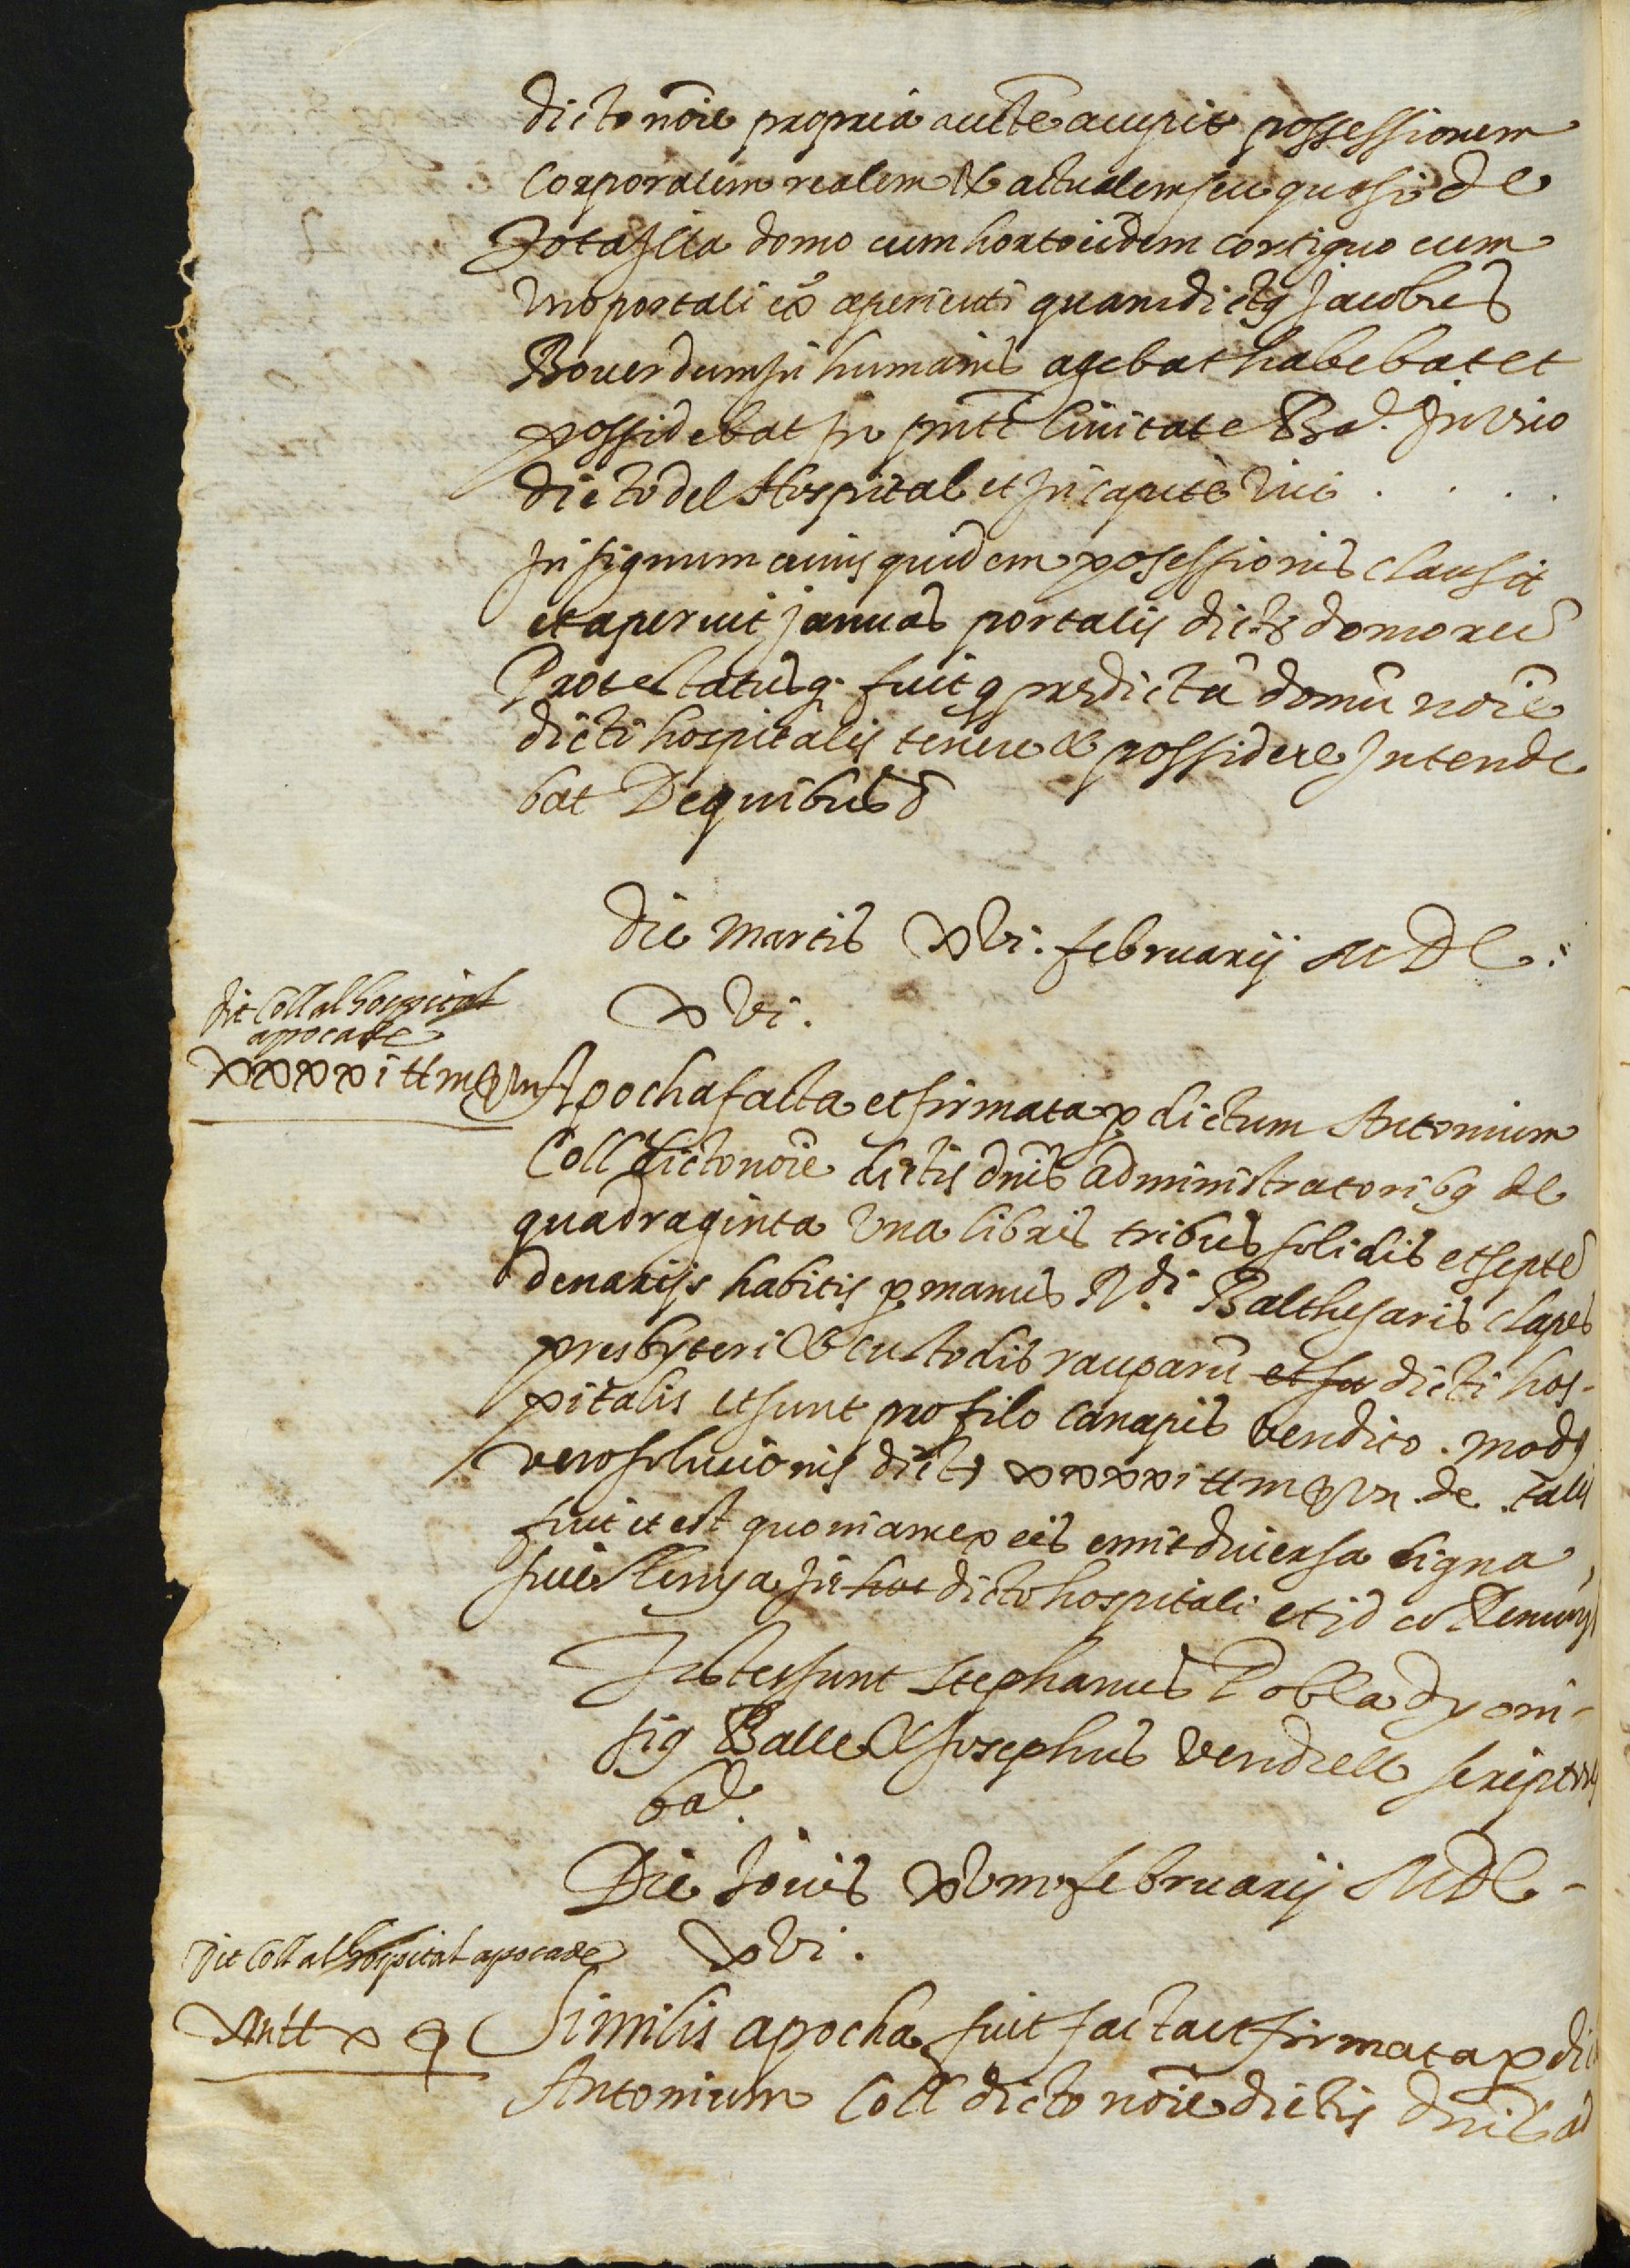 dicto nōie propria aucte accepit possessionem
Corporalem realem & actualem seu quasi de
Tota illa domo cum horto eidem contiguo cum
Uno portali ex aperienti quam dictus Jacobus
Bover dum in humanis agebat habebat et
possidebat in pnti Civitate Bar. In vico
dicto del Hospital et in capite vici . . . .
In signum cuius quidem posessionis clausit
et aperuit januas portalis dicte domorum
Protestatusq. fuit q predictā domū nōie
dicti hospitalis tenere & possidere Intende
bat De quibus
die Martis xvi. februarij MDL
xvi.
dit Coll al hospital
apoca de
xxxxi ₶ iii ß vii
Apocha facta et firmata p dictum Antonium
Coll dicto nōie dictis dnis administratoribq de
quadraginta Una libris tribus solidis et septē
denarijs habitis p manus Rdi Balthesaris Clapes
presbyteri & custodis rauparū et su dicti hos-
pitalis et sunt pro filo canapis vendito . modq
vero solucionis dict xxxxi ₶ iii ß vii de talis
fuit et est quoniam ex eis emit diversa ligna
sive llenya in hoc dicto hospitali et id eo Renung
Testes sunt Stephanus Pobla dyoni-
siq Balle & Josephus Vendrell scriptores
bar.
Die Jovis xviii februarij MDL-
xvi.
Dit Coll al hospital apoca de
Similis apocha fuit facta et firmata p dic
Antonium Coll dicto nōie dictis dnis ad